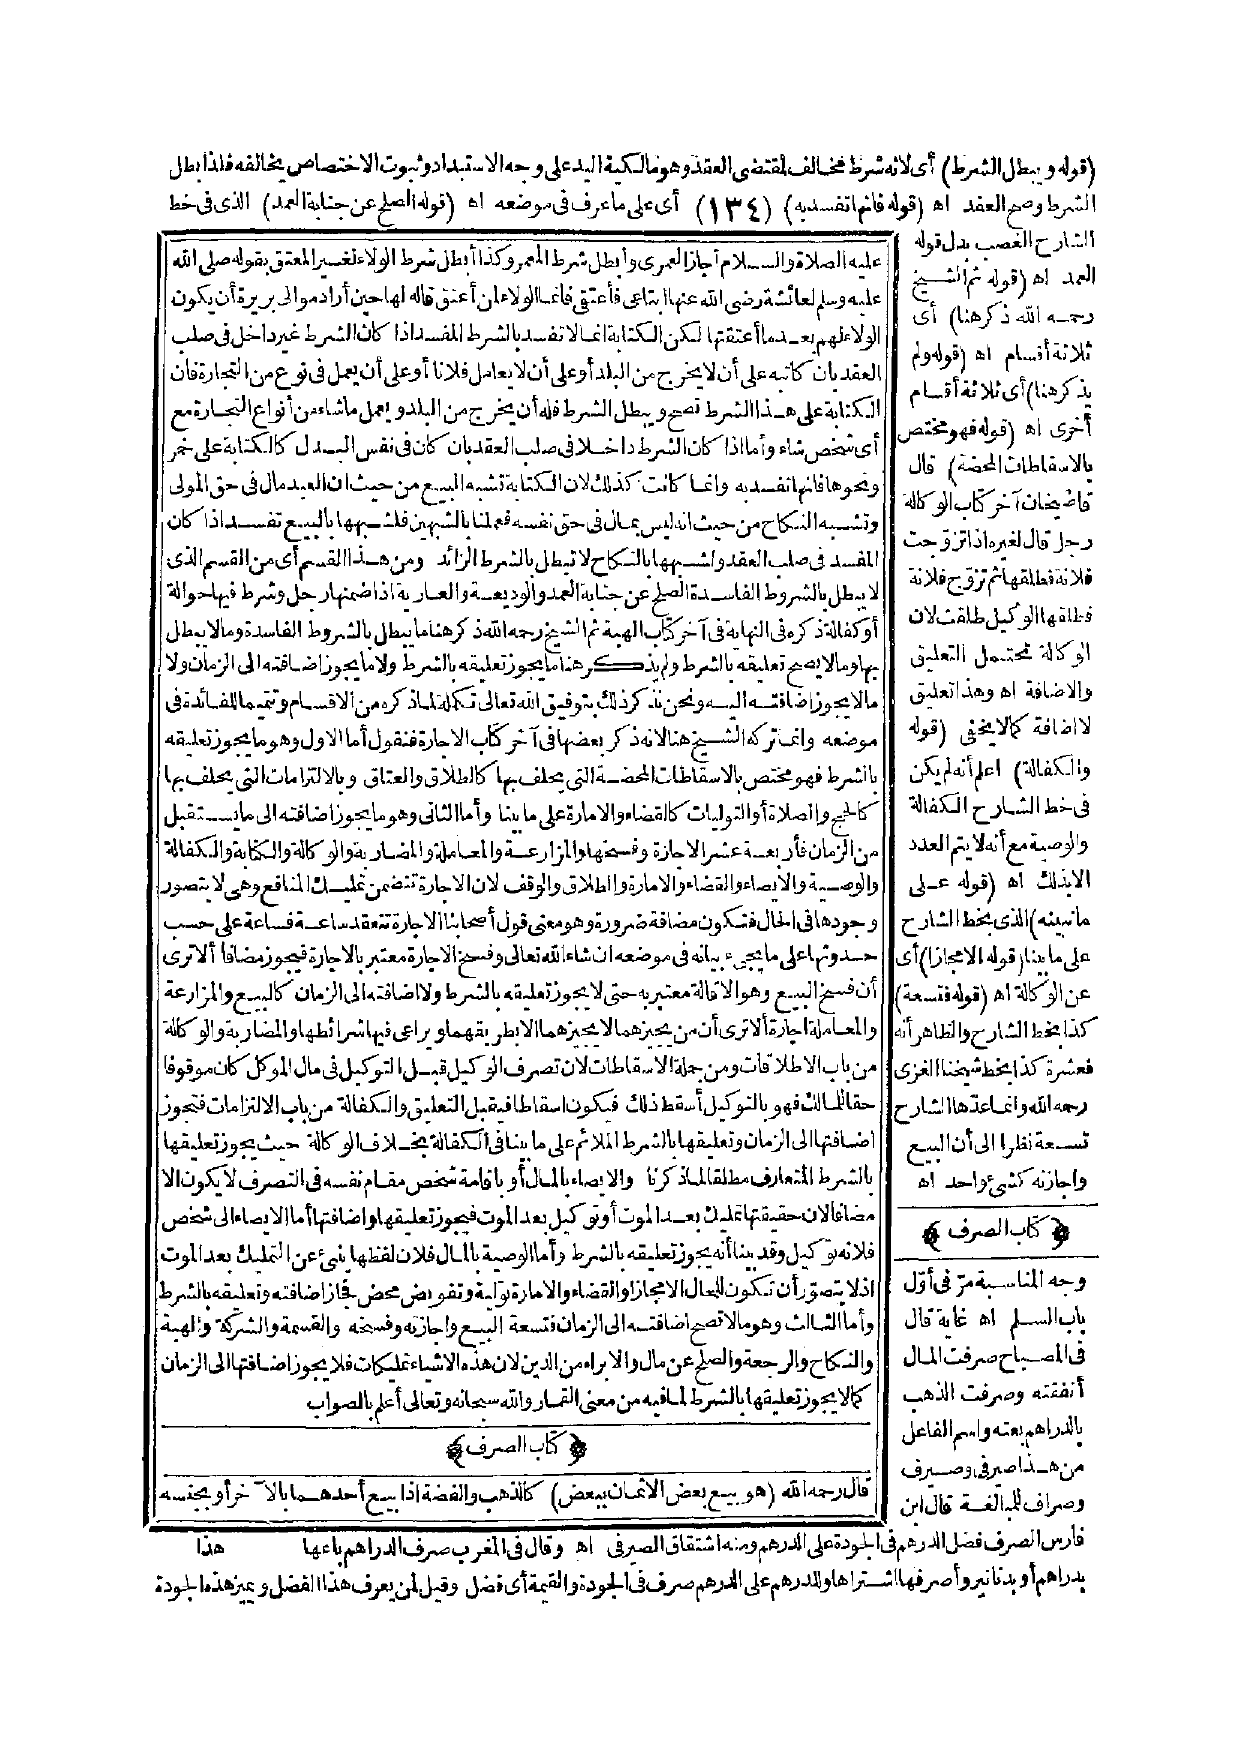 (قوله ويبطل الشرط) أى لانه شرط مخالف لمقتضى العقد وهو مالكية اليد على وجه الاستبداد وثبوت الاختصاص يخالفه فلذا بطل
الشرط وصح العقد اه (قوله فانها تفسد به) (١٣٤) أى على ما عرف فى موضعه اه (قوله الصلح عن جناية العمد) الذى فى خط
الشارح الغصب بدل قوله
العمد اه (قوله ثم الشيخ
رحمه الله ذكر هنا) أى
ثلاثة أقسام اه (قوله ولم
يذكر هنا) أى ثلاثة أقسام
أخرى اه (قوله فهو مختص
بالاسقاطات المحضة) قال
قاضيخان آخر كتاب الوكالة
رجل قال لغيره اذا تزوجت
فلانة فطلقها ثم تزوج فلانة
فطلقها الوكيل طلقت لان
الوكالة تحتمل التعليق
والاضافة اه وهذا تعليق
لا اضافة كما لا يخفى (قوله
والكفالة) اعلم أنه لم يكن
فى خط الشارح الكفالة
والوصية مع أنه لا يتم العدد
الا بذلك اه (قوله على
ما نبينه) الذى بخط الشارح
على ما بينا (قوله الامجازا) أى
عن الوكالة اه (قوله فتسعة)
كذا بخط الشارح والظاهر أنه
فعشرة كذا بخط شيخنا الغزى
رحمه الله وانما عدها الشارح
تسعة نظرا الى أن البيع
واجازته كشئ واحد اه
﴿كتاب الصرف﴾
وجه المناسبة مرّ فى أوّل
باب السلم اه غاية قال
فى المصباح صرفت المال
أنفقته وصرفت الذهب
بالدراهم بعته واسم الفاعل
من هذا صيرفى وصيرف
وصراف للمبالغة قال ابن
عليه الصلاة والسلام أجاز العمرى وأبطل شرط المعمر وكذا أبطل شرط الولاء لغير المعتق بقوله صلى الله
عليه وسلم لعائشة رضى الله عنها ابتاعى فأعتقى فانما الولاء لمن أعتق قاله لها حين أراد موالى بريرة أن يكون
الولاء لهم بعدما أعتقتها لكن الكتابة انما لا تفسد بالشرط المفسد اذا كان الشرط غير داخل فى صلب
العقد بان كاتبه على أن لا يخرج من البلد أو على أن لا يعامل فلانا أو على أن يعمل فى نوع من التجارة فان
الكتابة على هذا الشرط تصح ويبطل الشرط فله أن يخرج من البلد ويعمل ما شاء من أنواع التجارة مع
أى شخص شاء وأما اذا كان الشرط داخلا فى صلب العقد بان كان فى نفس البدل كالكتابة على خمر
ونحوها فانها تفسد به وانما كانت كذلك لان الكتابة تشبه البيع من حيث ان العبد مال فى حق المولى
وتشبه النكاح من حيث انه ليس بمال فى حق نفسه فعملنا بالشبهين فلشبهها بالبيع تفسد اذا كان
المفسد فى صلب العقد ولشبهها بالنكاح لا تبطل بالشرط الزائد ومن هذا القسم أى من القسم الذى
لا يبطل بالشروط الفاسدة الصلح عن جناية العمد والوديعة والعارية اذا ضمنها رجل وشرط فيها حوالة
أو كفالة ذكره فى النهاية فى آخر كتاب الهبة ثم الشيخ رحمه الله ذكر هنا ما يبطل بالشروط الفاسدة وما لا يبطل
بها وما لا يصح تعليقه بالشرط ولم يذكر هنا ما يجوز تعليقه بالشرط ولا ما يجوز اضافته الى الزمان ولا
ما لا يجوز اضافته اليه ونحن نذكر ذلك بتوفيق الله تعالى تكملة لما ذكره من الاقسام وتتميما للفائدة فى
موضعه وانما تركه الشيخ هنا لانه ذكر بعضها فى آخر كتاب الاجارة فنقول أما الاول وهو ما يجوز تعليقه
بالشرط فهو مختص بالاسقاطات المحضة التى يحلف بها كالطلاق والعتاق وبالالتزامات التى يحلف بها
كالحج والصلاة أو التوليات كالقضاء والامارة على ما بينا وأما الثانى وهو ما يجوز اضافته الى ما يستقبل
من الزمان فأربعة عشر الاجارة وفسخها والمزارعة والمعاملة والمضاربة والوكالة والكتابة والكفالة
والوصية والايصاء والقضاء والامارة والطلاق والوقف لان الاجارة تتضمن تمليك المنافع وهى لا يتصور
وجودها فى الحال فتكون مضافة ضرورة وهو معنى قول أصحابنا الاجارة تنعقد ساعة فساعة على حسب
حدوثها على ما يجىء بيانه فى موضعه ان شاء الله تعالى وفسخ الاجارة معتبر بالاجارة فيجوز مضافا ألا ترى
أن فسخ البيع وهو الاقالة معتبر به حتى لا يجوز تعليقه بالشرط ولا اضافته الى الزمان كالبيع والمزارعة
والمعاملة اجارة ألا ترى أن من يجيزهما لا يجيزهما الا بطريقهما ويراعى فيها شرائطها والمضاربة والوكالة
من باب الاطلاقات ومن جملة الاسقاطات لان تصرف الوكيل قبل التوكيل فى مال الموكل كان موقوفا
حقا للمالك فهو بالتوكيل أسقط ذلك فيكون اسقاطا فيقبل التعليق والكفالة من باب الالتزامات فتجوز
اضافتها الى الزمان وتعليقها بالشرط الملائم على ما بينا فى الكفالة بخلاف الوكالة حيث يجوز تعليقها
بالشرط المتعارف مطلقا لما ذكرنا والايصاء بالمال أو باقامة شخص مقام نفسه فى التصرف لا يكون الا
مضافا لان حقيقتها تمليك بعد الموت أو توكيل بعد الموت فيجوز تعليقها واضافتها أما الايصاء الى شخص
فلانه توكيل وقد بينا أنه يجوز تعليقه بالشرط وأما الوصية بالمال فلان لفظها ينبئ عن التمليك بعد الموت
اذ لا يتصوّر أن تكون للحال الامجازا والقضاء والامارة تولية وتفويض محض فجاز اضافته وتعليقه بالشرط
وأما الثالث وهو ما لا تصح اضافته الى الزمان فتسعة البيع واجازته وفسخه والقسمة والشركة والهبة
والنكاح والرجعة والصلح عن مال والابراء من الدين لان هذه الاشياء تمليكات فلا يجوز اضافتها الى الزمان
كما لا يجوز تعليقها بالشرط لما فيه من معنى القمار والله سبحانه وتعالى أعلم بالصواب
﴿كتاب الصرف﴾
قال رحمه الله (هو بيع بعض الاثمان ببعض) كالذهب والفضة اذا بيع أحدهما بالآخر أو بجنسه
فارس الصرف فضل الدرهم فى الجودة على الدرهم ومنه اشتقاق الصيرفى اه وقال فى المغرب صرف الدراهم باعها هذا
بدراهم أو بدنانير وأصرفها اشتراها وللدرهم على الدرهم صرف فى الجودة والقيمة أى فضل وقيل لمن يعرف هذا الفضل ويميز هذه الجودة